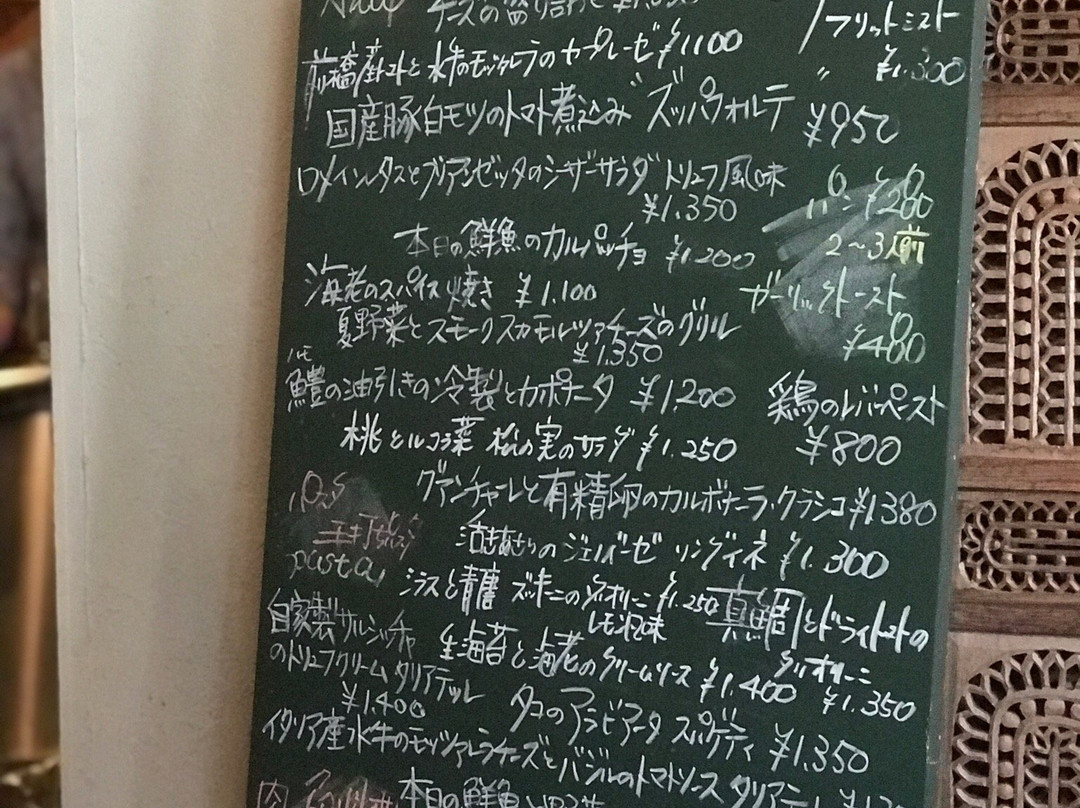 チーズの盛り合わせ
フリットミスト
¥1,300
前橋産トマトと水牛のモッツァレラのカプレーゼ ¥1100
国産豚白モツのトマト煮込み ズッパフォルテ ¥950
ロメインレタスとブリアンゼッタのシーザーサラダ トリュフ風味
¥1.350
パン ¥280
2~3人前
本日の鮮魚のカルパッチョ ¥1.200
ガーリックトースト
¥480
海老のスパイス焼き ¥1.100
夏野菜とスモークスカモルツァチーズのグリル
¥1.350
ハモ
鱧の油引きの冷製とカポナータ ¥1,200
鶏のレバーペースト
¥800
桃とルコラ菜 松の実のサラダ ¥1.250
グアンチャーレと有精卵のカルボナーラ・クラシコ ¥1380
手打ち
pasta
活あさりのジェノベーゼ リングイネ ¥1.300
シラスと青唐 ズッキーニの ¥1.250
レモン風味
真鯛とドライトマトの
¥1.350
自家製サルシッチャ
のトリュフクリーム タリアテッレ
¥1.400
生海苔と海老のクリームソース ¥1.400
タコのアラビアータ スパゲティ ¥1,350
イタリア産水牛のモッツァレラチーズとバジルのトマトソース タリアテ
肉
本日の鮮魚